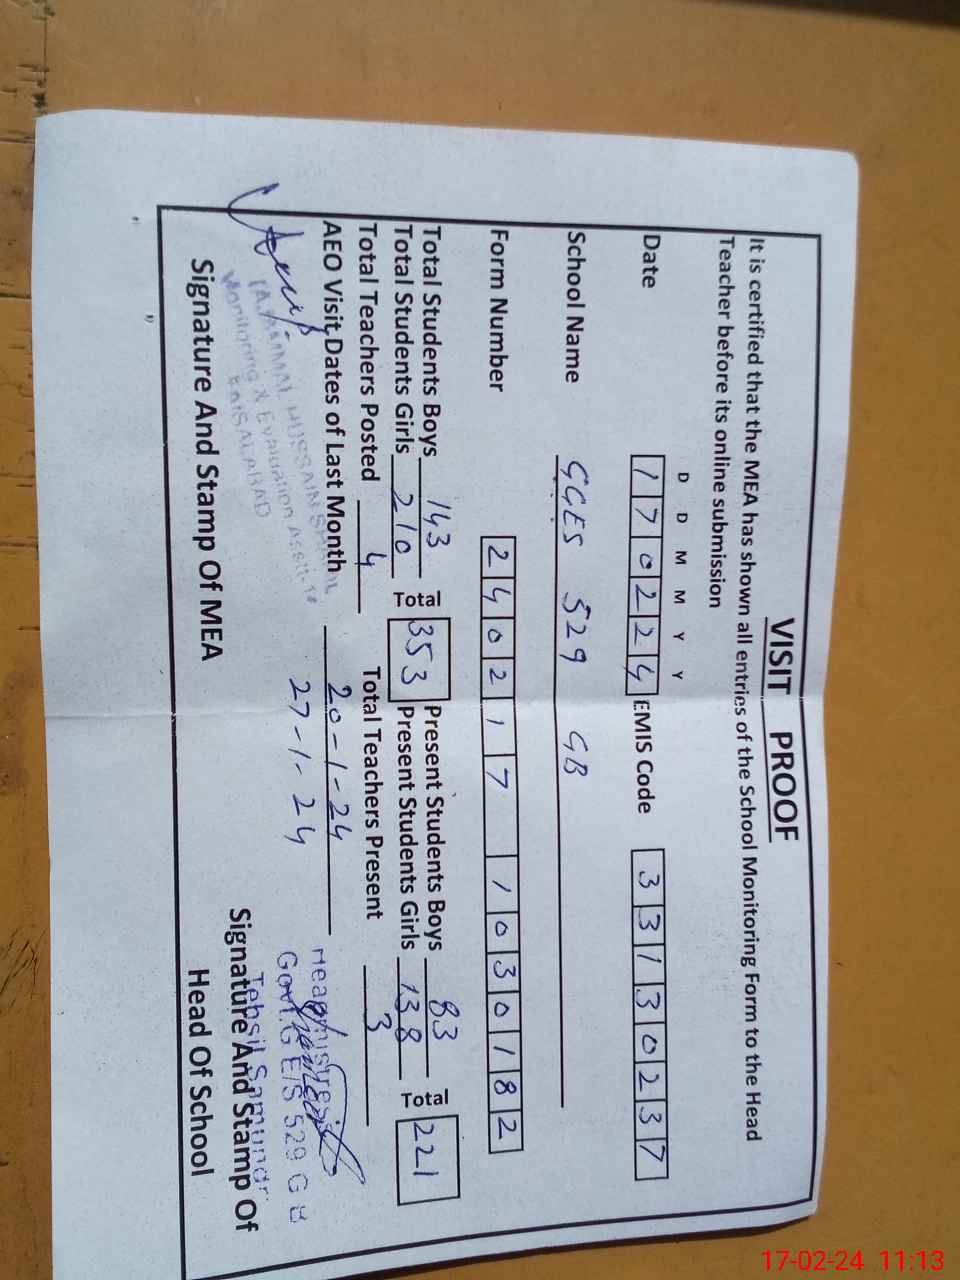 VISIT PROOF
It is certified that the MEA has shown all entries of the School Monitoring Form to the Head
Teacher before its online submission
D D M M Y Y
Date 170224 EMIS Code 33130237
School Name GGES 529 GB
Form Number 240217 1030182
Total Students Boys 143 Present Students Boys 83
Total 353 Total 221
Total Students Girls 210 Present Students Girls 138
Total Teachers Posted 4 Total Teachers Present 3
AEO Visit Dates of Last Month 20-1-24
27-1-24
HUSSAIN
Monitoring & Evaluation Asstt.
FAISALABAD
Headmistress
Govt. G E/S 529 G B
Tehsil Samundri
Signature And Stamp Of MEA
Signature And Stamp Of
Head Of School
17-02-24 11:13